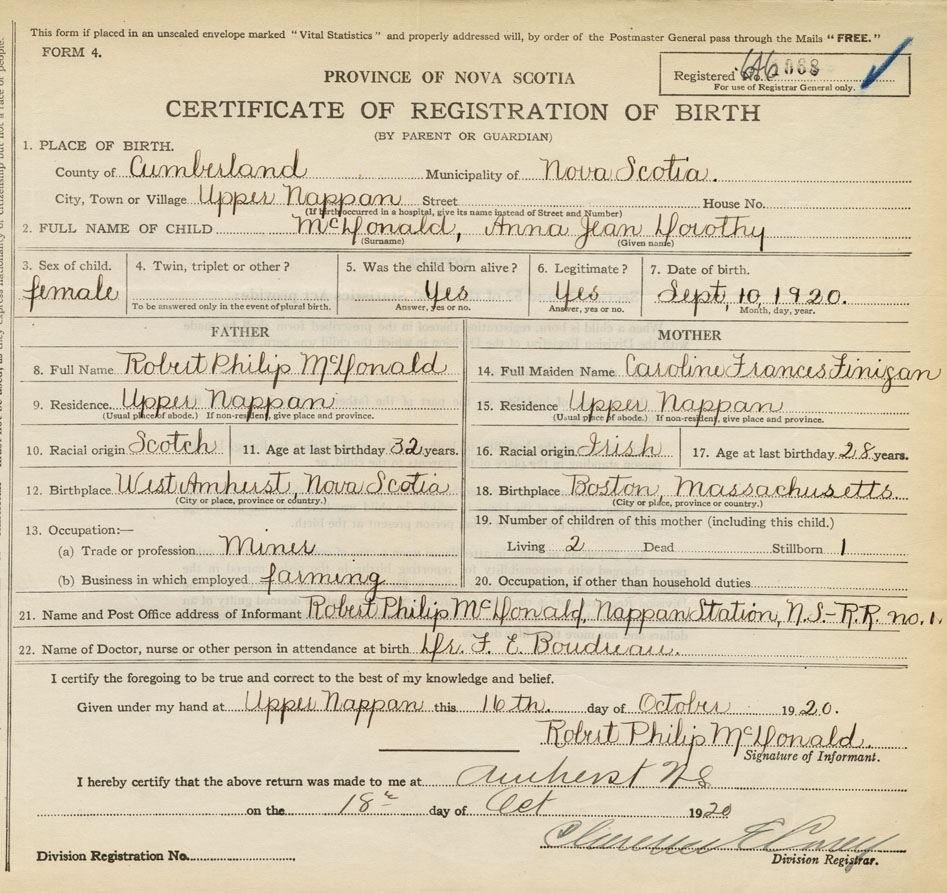 This form if placed in an unsealed envelope marked "Vital Statistics" and properly addressed will, by order of the Postmaster General pass through the Mails "FREE."
FORM 4.
PROVINCE OF NOVA SCOTIA
Registered No.
For use of Registrar General only.
CERTIFICATE OF REGISTRATION OF BIRTH
(BY PARENT OR GUARDIAN)
1. PLACE OF BIRTH.
County of Cumberland Municipality of Nova Scotia.
City, Town or Village Upper Nappan Street House No.
(If birth occurred in a hospital, give its name instead of Street and Number)
2. FULL NAME OF CHILD McDonald, Anna Jean Dorothy
(Surname) (Given name)
3. Sex of child. 4. Twin, triplet or other? 5. Was the child born alive? 6. Legitimate? 7. Date of birth.
female Yes Yes Sept, 10, 1920.
To be answered only in the event of plural birth. Answer, yes or no. Answer, yes or no. Month, day, year.
FATHER MOTHER
8. Full Name Robert Philip McDonald 14. Full Maiden Name Caroline Frances Finigan
9. Residence. Upper Nappan 15. Residence Upper Nappan
(Usual place of abode.) If non-resident, give place and province. (Usual place of abode.) If non-resident, give place and province.
10. Racial origin Scotch 11. Age at last birthday 32 years. 16. Racial origin Irish 17. Age at last birthday 28 years.
12. Birthplace West Amherst, Nova Scotia 18. Birthplace Boston, Massachusetts
(City or place, province or country.) (City or place, province or country.)
13. Occupation:— 19. Number of children of this mother (including this child.)
(a) Trade or profession Miner Living 2 Dead Stillborn 1
(b) Business in which employed farming 20. Occupation, if other than household duties
21. Name and Post Office address of Informant Robert Philip McDonald, Nappan Station, N.S.-R.R. no. 1.
22. Name of Doctor, nurse or other person in attendance at birth Dr. F. E. Boudreau.
I certify the foregoing to be true and correct to the best of my knowledge and belief.
Given under my hand at Upper Nappan this 16th. day of October 1920.
Robert Philip McDonald.
Signature of Informant.
I hereby certify that the above return was made to me at Amherst NS
on the 18th day of Oct 1920
Division Registration No.
Division Registrar.